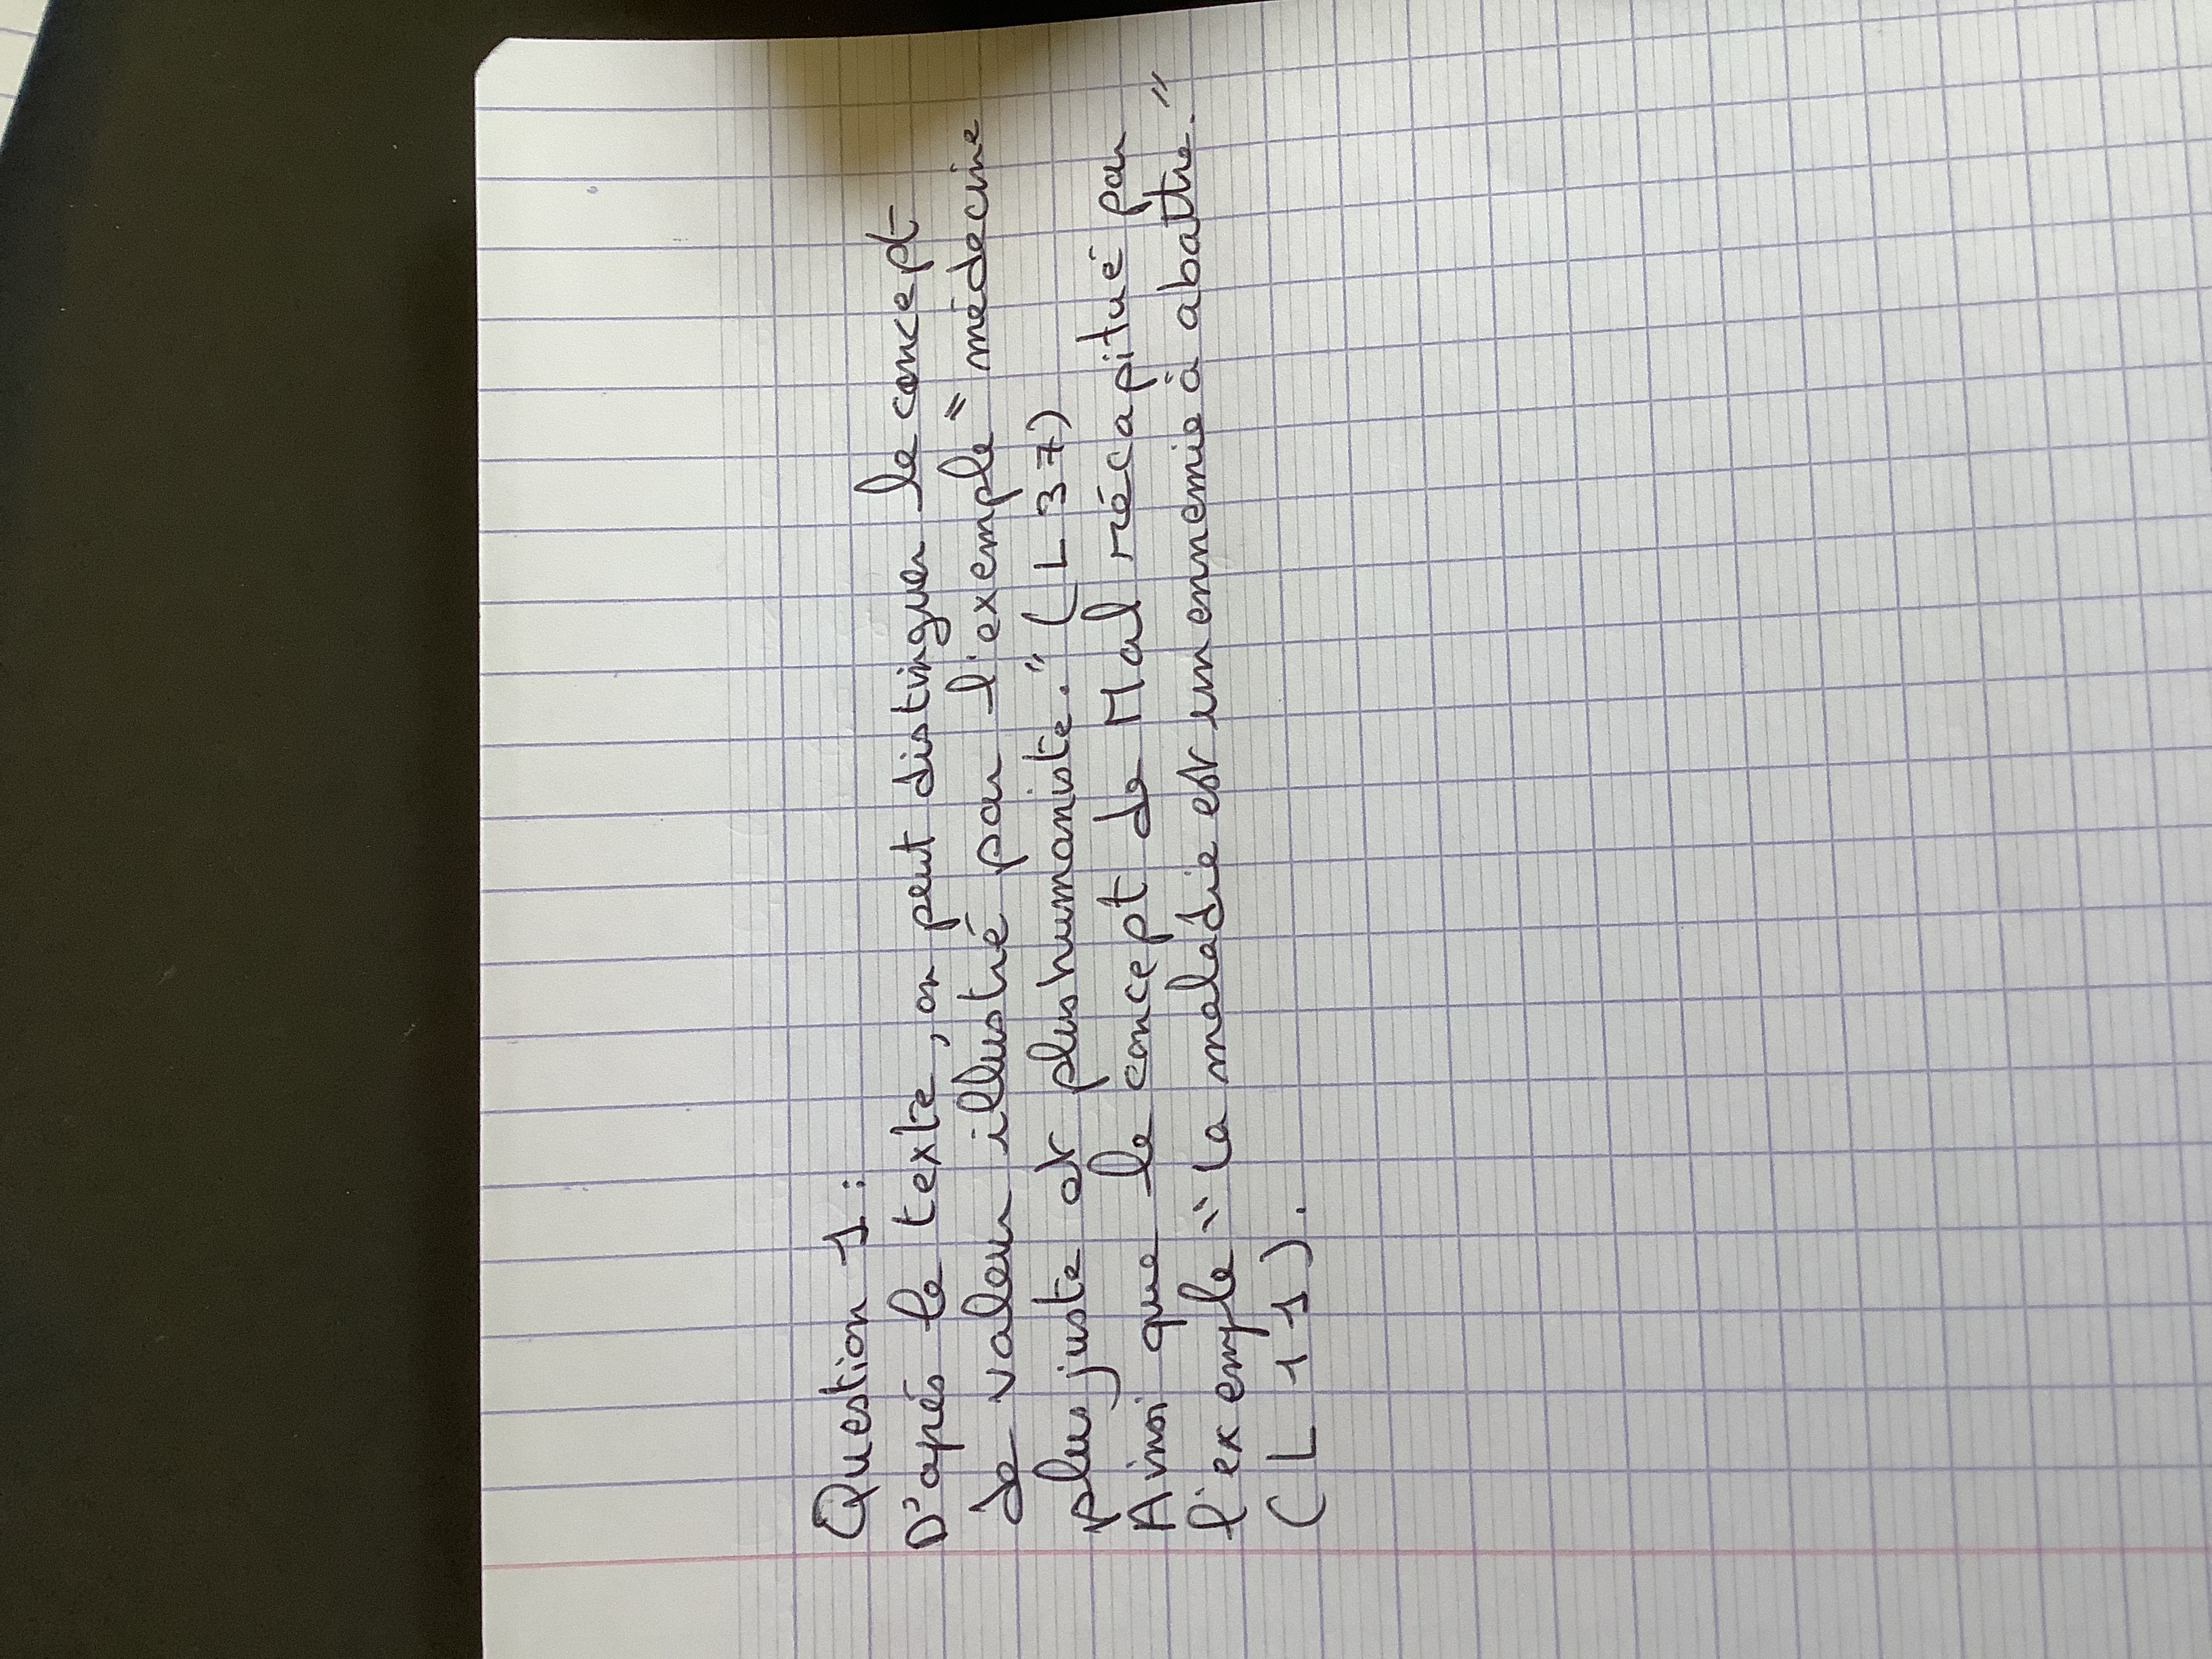 Question 1 :
D'après le texte, on peut distinguer le concept
de valeur illustré par l'exemple " médecine
plus juste et plus humaniste." (L 37)
Ainsi que le concept de Mal récapitué par
l'exemple " La maladie est un ennemie à abattre. "
(L 11).